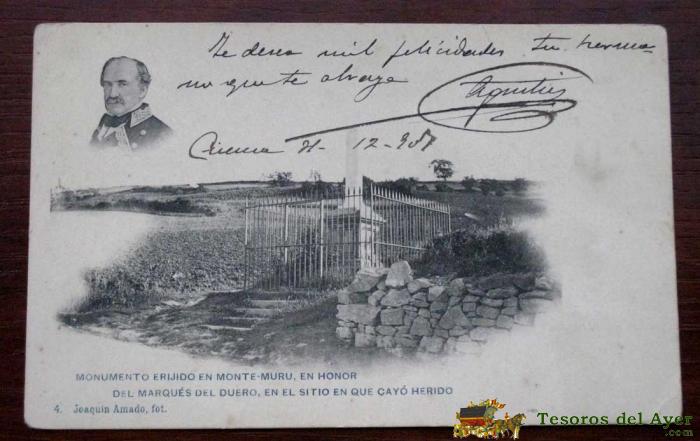 Te desea mil felicidades tu herma
no que te abraza
Agustin
31-12-905
MONUMENTO ERIJIDO EN MONTE-MURU, EN HONOR
DEL MARQUÉS DEL DUERO, EN EL SITIO EN QUE CAYÓ HERIDO
4. Joaquin Amado, fot.
Tesoros del Ayer
.com